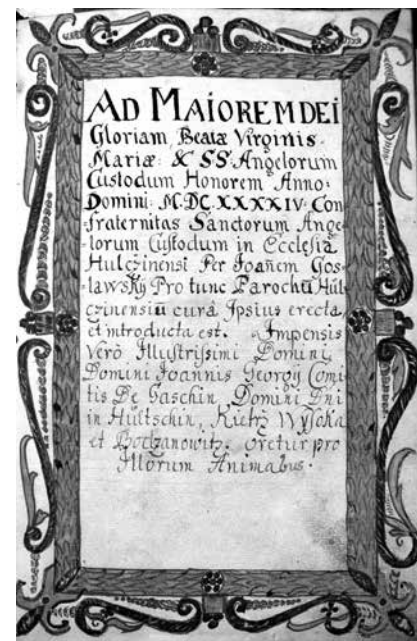 AD MAIOREM DEI
Gloriam, Beatæ Virginis
Mariæ & SS. Angelorum
Custodum Honorem Anno
Domini M.DC.XXXXIV. Con
fraternitas Sanctorum Ange
lorum Custodum in Ecclesia
Hulczinensi Per Joañem Gos
lawsky Pro tunc Parochū Hul
czinensiū curâ Ipsius erecta,
et introducta est. Impensis
Verò Illustrissimi Domini,
Domini Joannis Georgÿ Comi
tis De Gaschin, Domini Dni
in Hultschin, Kietrz Wysoka
et Bodzanowitz. oretur pro
Illorum Animabus.